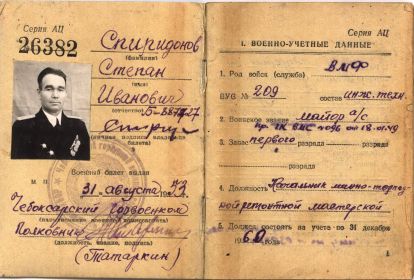 Серия АЦ
26382
Спиридонов
(фамилия)
Степан
(имя)
Иванович
(отчество)
(личная подпись владельца билета)
Военный билет выдан
31 августа 1953.
Чебоксарский Горвоенком
Полковник
(должность, звание, подпись)
(Татаркин)
Серия АЦ
I. ВОЕННО-УЧЕТНЫЕ ДАННЫЕ
1. Род войск (служба) ВМФ
ВУС № 209 состав инж. техн.
2. Воинское звание майор а/с
3. Запас первого разряда
разряда
4. Должность Начальник минно-торпед
ной ремонтной мастерской
5. Должен состоять на учете по 31 декабря
1960.